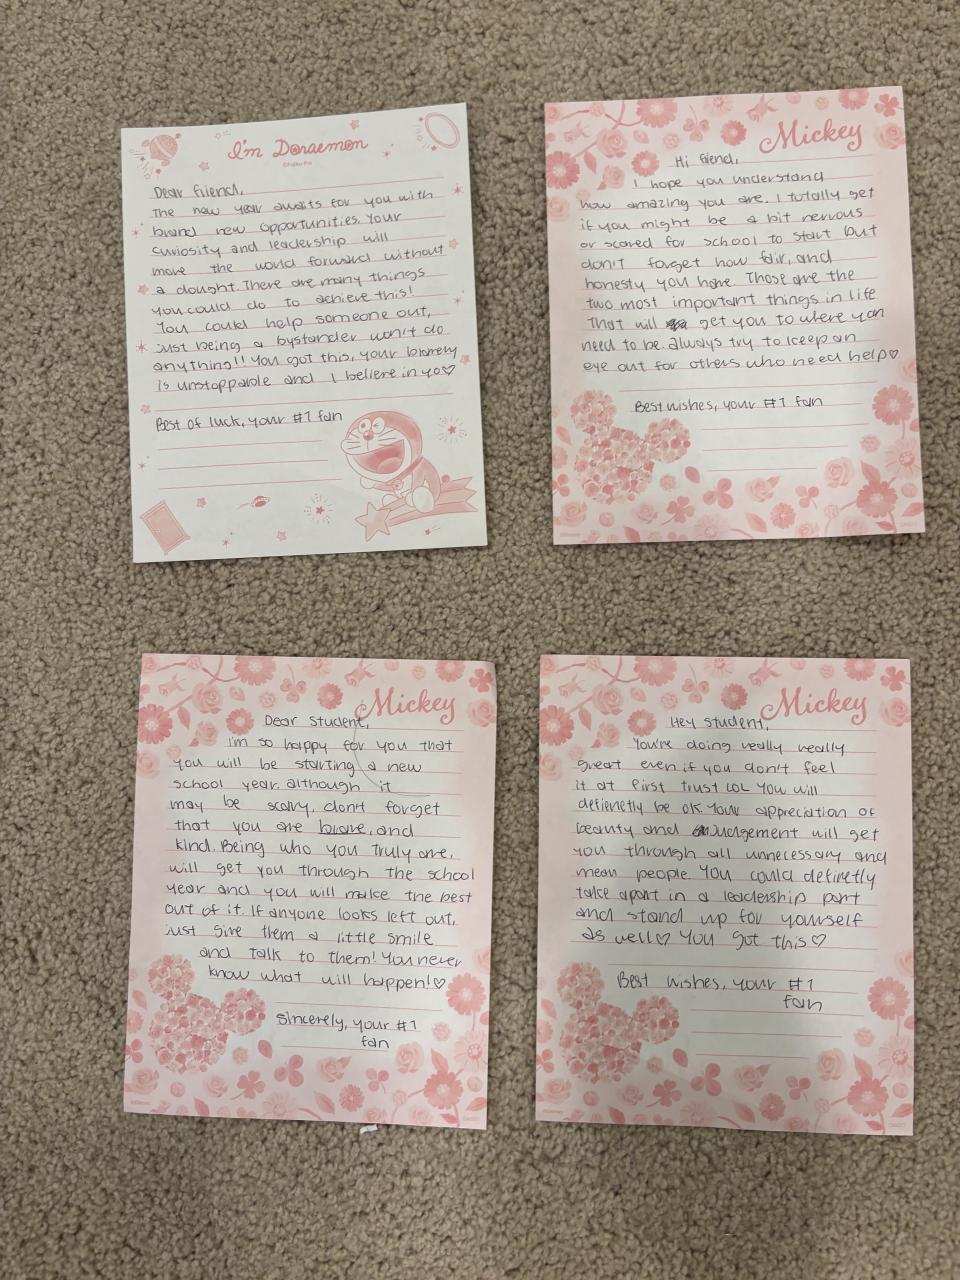 I'm Doraemon
©Fujiko-Pro
Dear friend,
The new year awaits for you with
brand new opportunities. Your
curiosity and leadership will
move the world forward without
a dought. There are many things
you could do to achieve this!
You could help someone out,
just being a bystander won't do
anything!! You got this, your bravery
is unstoppable and I believe in yo♡
Best of luck, your #1 fan
Mickey
Hi friend,
I hope you understand
how amazing you are. I totally get
if you might be a bit nervous
or scared for school to start but
don't forget how fair, and
honesty you have. Those are the
two most important things in life
That will get you to where you
need to be. always try to keep an
eye out for others who need help♡
Best wishes, your #1 fan
Mickey
Dear Student,
I'm so happy for you that
you will be starting a new
school year. although it
may be scary, don't forget
that you are brave, and
kind. Being who you truly are,
will get you through the school
year and you will make the best
out of it. If anyone looks left out,
just give them a little smile
and talk to them! You never
know what will happen!♡
Sincerely, your #1
fan
Mickey
Hey student,
You're doing really really
great even if you don't feel
it at first trust LOL You will
defienetly be ok. Your appreciation of
beauty and judgement will get
you through all unnecessary and
mean people. You could definetly
take apart in a leadership part
and stand up for yourself
as well♡ You got this♡
Best wishes, your #1
fan